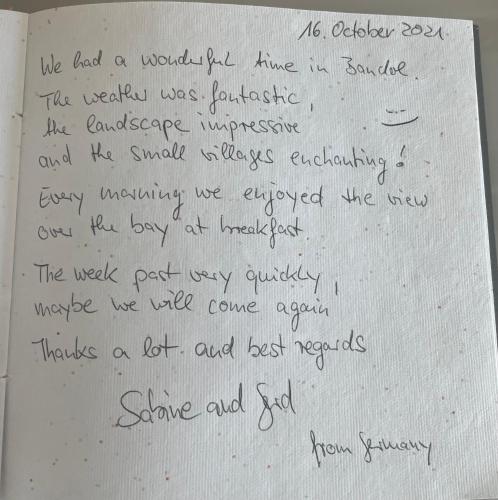 16. October 2021.
We had a wonderful time in Bandol.
The weather was fantastic,
the landscape impressive
and the small villages enchanting!
Every morning we enjoyed the view
over the bay at breakfast.
The week past very quickly,
maybe we will come again
Thanks a lot and best regards
Sabine and Gerd
from Germany